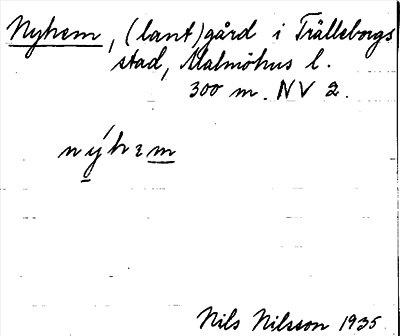 Nyhem, (lant)gård i Trälleborgs
stad, Malmöhus l.
300 m. NV 2.
nýhɛm
Nils Nilsson 1935